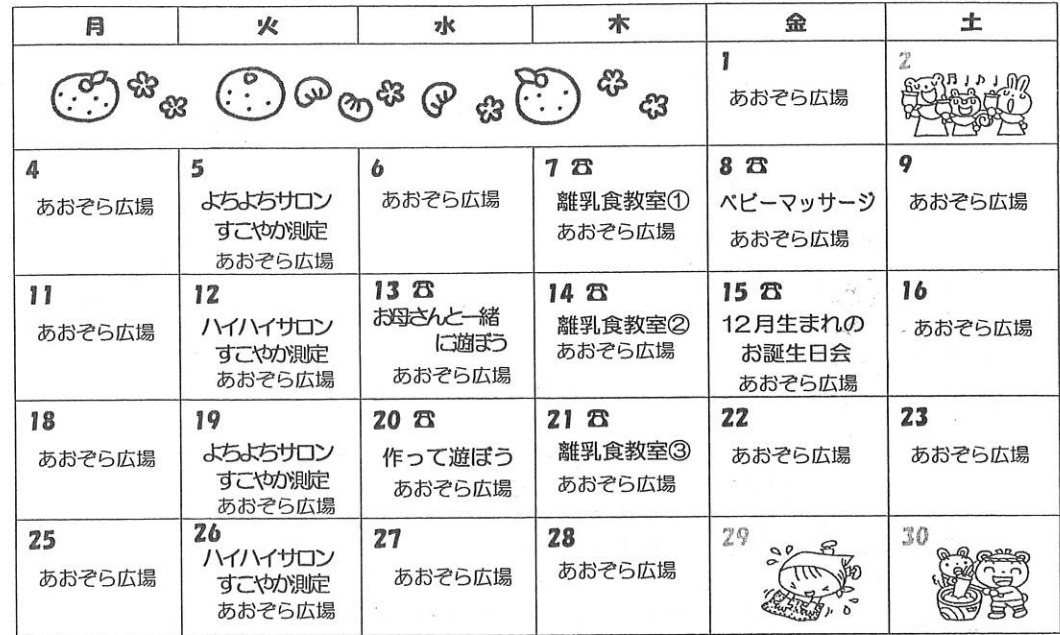 月 火 水 木 金 土
1
あおぞら広場
2
4
あおぞら広場
5
よちよちサロン
すこやか測定
あおぞら広場
6
あおぞら広場
7 ☎
離乳食教室①
あおぞら広場
8 ☎
ベビーマッサージ
あおぞら広場
9
あおぞら広場
11
あおぞら広場
12
ハイハイサロン
すこやか測定
あおぞら広場
13 ☎
お母さんと一緒
に遊ぼう
あおぞら広場
14 ☎
離乳食教室②
あおぞら広場
15 ☎
12月生まれの
お誕生日会
あおぞら広場
16
あおぞら広場
18
あおぞら広場
19
よちよちサロン
すこやか測定
あおぞら広場
20 ☎
作って遊ぼう
あおぞら広場
21 ☎
離乳食教室③
あおぞら広場
22
あおぞら広場
23
あおぞら広場
25
あおぞら広場
26
ハイハイサロン
すこやか測定
あおぞら広場
27
あおぞら広場
28
あおぞら広場
29
30